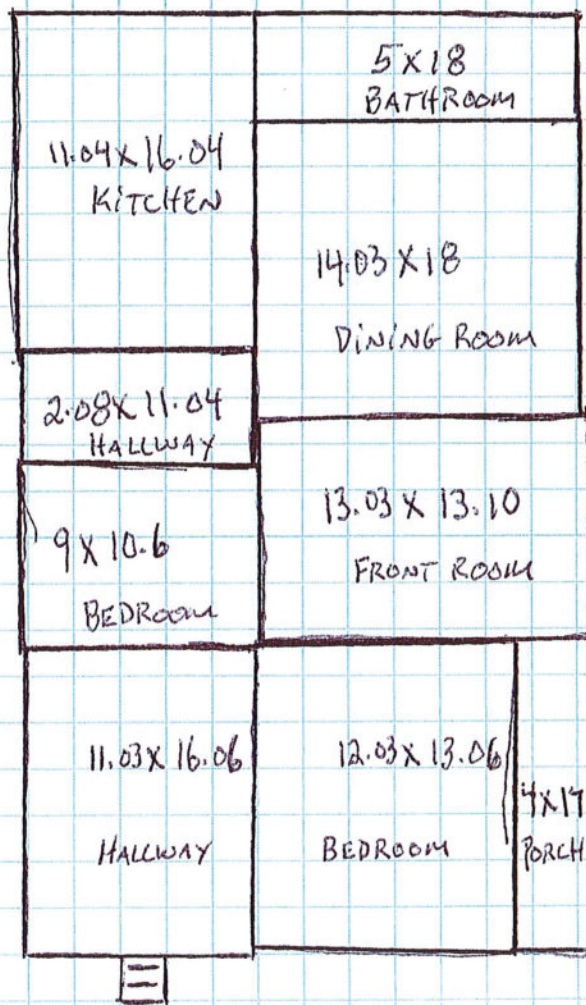 5 X 18
BATHROOM
11.04 X 16.04
KITCHEN
14.03 X 18
DINING ROOM
2.08 X 11.04
HALLWAY
13.03 X 13.10
FRONT ROOM
9 X 10.6
BEDROOM
11.03 X 16.06
HALLWAY
12.03 X 13.06
BEDROOM
PORCH